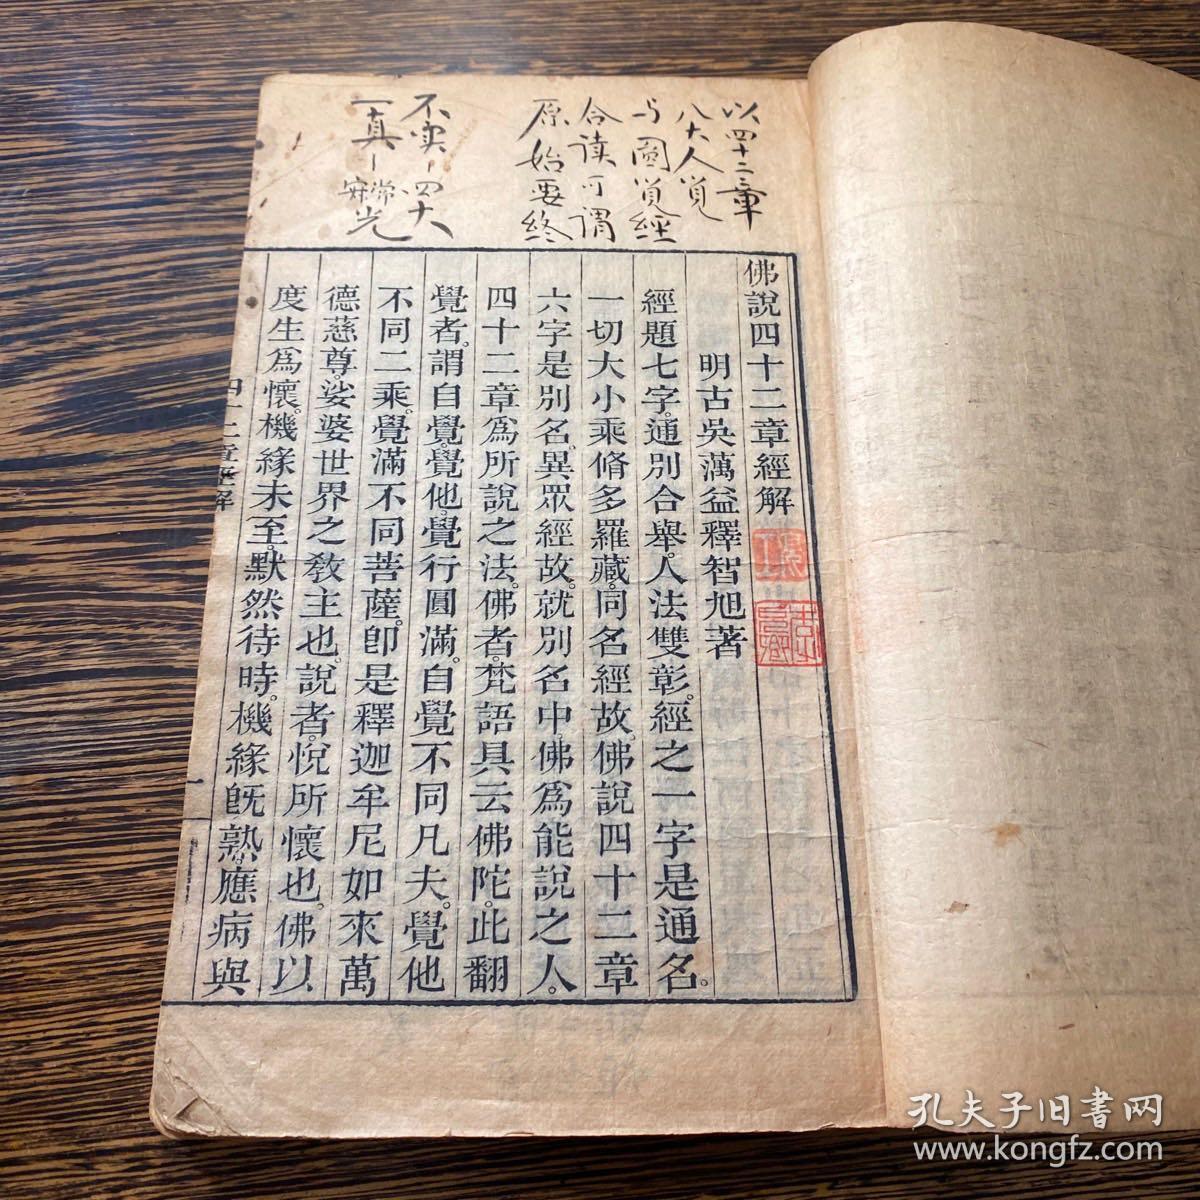 以四十二章
八大人覚
与圆覚經
合读可谓
原始要终
不实一四大
一真一
常
寂
光
佛說四十二章經解
明古吳蕅益釋智旭著
經題七字。通別合舉。人法雙彰。經之一字是通名。
一切大小乘脩多羅藏。同名經故。佛說四十二章
六字是別名。異眾經故。就別名中。佛爲能說之人。
四十二章爲所說之法。佛者。梵語具云佛陀。此翻
覺者。謂自覺。覺他。覺行圓滿。自覺不同凡夫。覺他
不同二乘。覺滿不同菩薩。卽是釋迦牟尼如來萬
德慈尊。娑婆世界之教主也。說者。悅所懷也。佛以
度生爲懷。機緣未至。默然待時。機緣旣熟。應病與
四十二章經解
一
孔夫子旧書网
www.kongfz.com